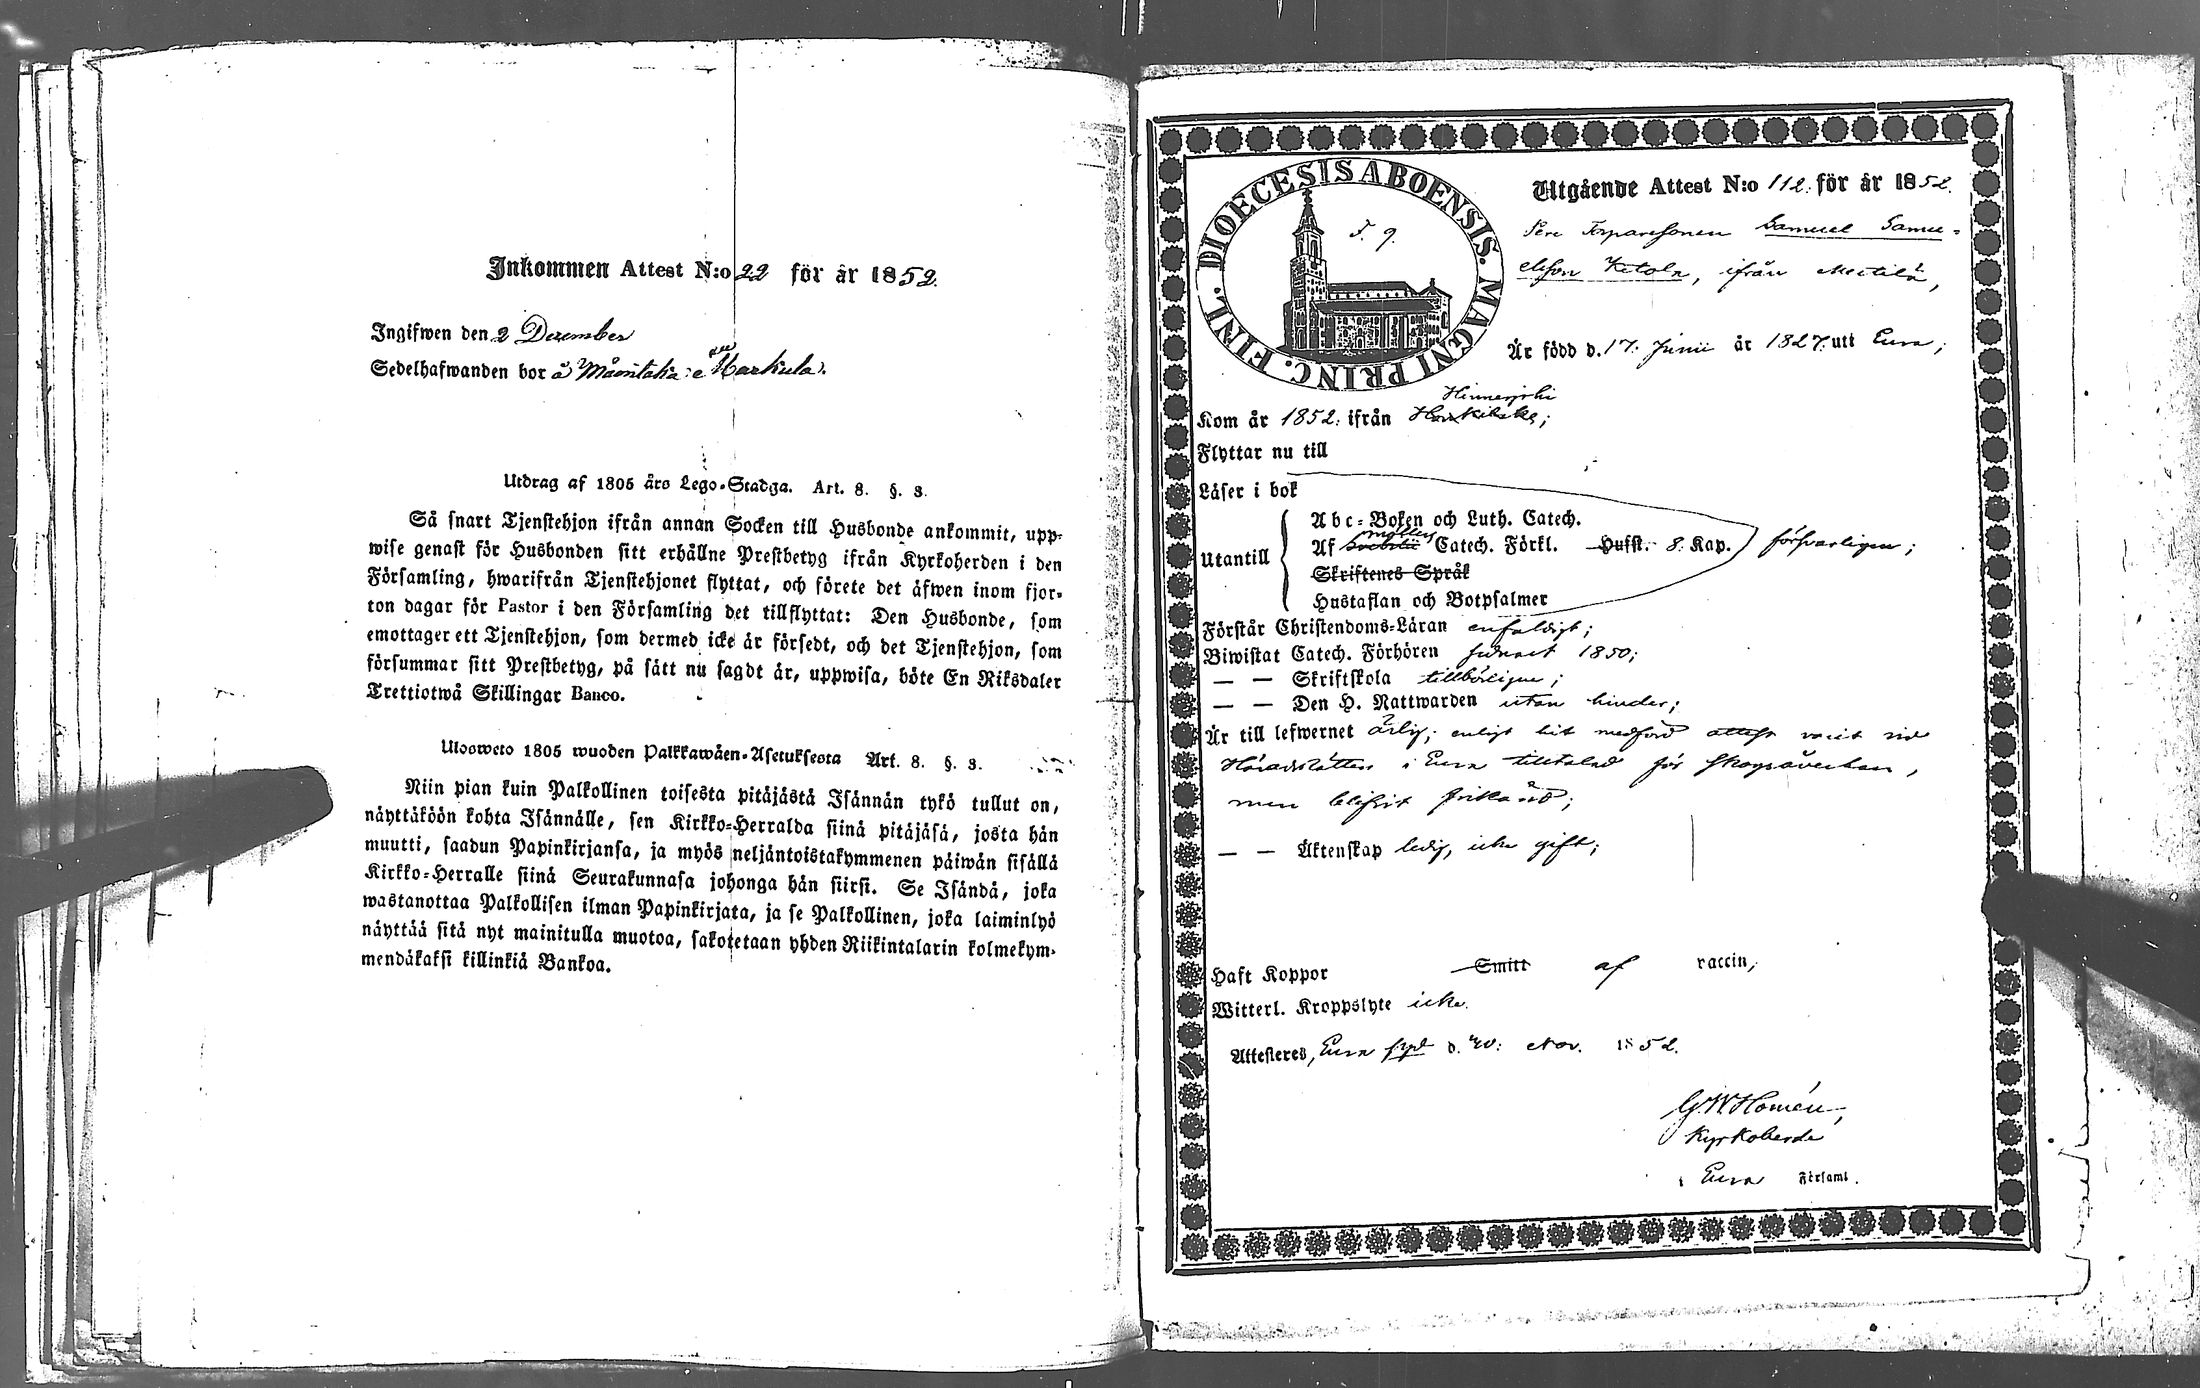 Inkommen Attest N:o 22 för år 1852.
Ingifwen den 2 Dezember
Sedelhafwanden bor å
Utdrag af 1805 års Lego-Stadga. Art. 8. §. 3.
Så snart Tjenstehjon ifrån annan Socken till Husbonde ankommit, upp-
wise genast för Husbonden sitt erhållne Prestbetyg ifrån Kyrkoherden i den
Församling, hwarifrån Tjenstehjonet flyttat, och förete det äfwen inom fjor-
ton dagar för Pastor i den Församling det tillflyttat: Den Husbonde, som
emottager ett Tjenstehjon, som dermed icke är försedt, och det Tjenstehjon, som
försummar sitt Prestbetyg, på sätt nu sagdt är, uppwisa, böte En Riksdaler
Trettiotwå Skillingar Banco.
Ulosweto 1805 wuoden Palkkawäen-Asetuksesta Art. 8. §. 3.
Niin pian kuin Palkollinen toisesta pitäjästä Isännän tykö tullut on,
näyttäköön kohta Isännälle, sen Kirkko-Herralda siinä pitäjäsä, josta hän
muutti, saadun Papinkirjansa, ja myös neljäntoistakymmenen päiwän sisällä
Kirkko-Herralle siinä Seurakunnasa johonga hän siirsi. Se Isändä, joka
wastanottaa Palkollisen ilman Papinkirjata, ja se Palkollinen, joka laiminlyö
näyttää sitä nyt mainitulla muotoa, sakotetaan yhden Riikintalarin kolmekym-
mendäkaksi killinkiä Bankoa.
DIOECESIS ABOENSIS. MAGNI PRINC. FINL.
F. 9.
Utgående Attest N:o 112. för år 1852.
Torparesonen Samuel Samu-
elsson Ketola, ifrån Mestilä,
Är född d. 17. Junii år 1827. uti Eura;
Hinnerjoki
Kom år 1852. ifrån Honkilaks;
Flyttar nu till
Läser i bok
Abc-Boken och Luth. Catech.
Möllers
Utantill Af Svebelii Catech. Förkl. Husst. 8. Kap. försvarligen;
Skriftenes Språk
Hustaflan och Botpsalmer
Förstår Christendoms-Läran enfaldigt;
Biwistat Catech. Förhören senast 1850;
— — Skriftskola tillbörligen;
— — Den H. Nattwarden utan hinder;
Är till lefwernet ärlig; enligt hit medförd attest varit vid
Häradsrätten i Eura tilltalad för skogsåverkan,
men blifvit frikänd;
— — Äktenskap ledig, icke gift;
Haft Koppor Smitt af vaccin,
Witterl. Kroppslyte icke.
Attesteres, Eura d. 20: Nov. 1852.
G W Homén,
Kyrkoherde
i Eura Församl.